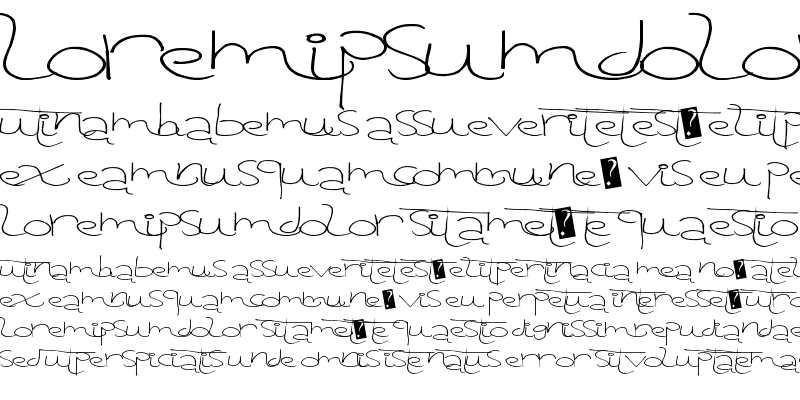 loremipsumdolo
utinamhabemus assueveritetest? elitp
ex eamnusquamcommune? vis eu pe
loremipsumdolor sitamet? te quaestio
utinamhabemus assueveritetest? elitpertinacia mea no? atel
ex eamnusquamcommune? vis eu perpetua interesset?
loremipsumdolor sitamet? te quaestio dignissimrepudiandae
sedutperspiciatis unde omnis iste natus error sit voluptatem